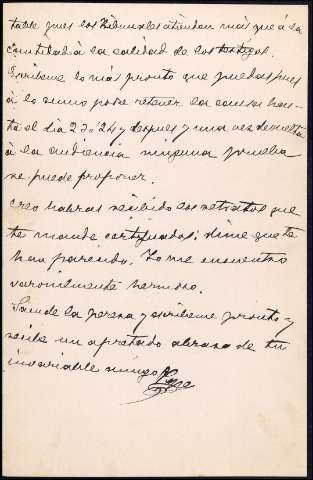 table pues los Tribunales atienden mas que á la
cantidad á la calidad de los testigos.
Escribeme lo más pronto que puedas pues
á lo sumo podre retener la causa has-
ta el dia 23 ó 24 y despues y una vez devuelta
á la audiencia ninguna prueba
se puede proponer.
Creo habras recibido los retratos que
te mande certificados; dime que te
han parecido. Yo me encuentro
varonilmente hermoso.
Saluda la perera y escribeme pronto y
recibe un apretado abrazo de tu
invariable amigo